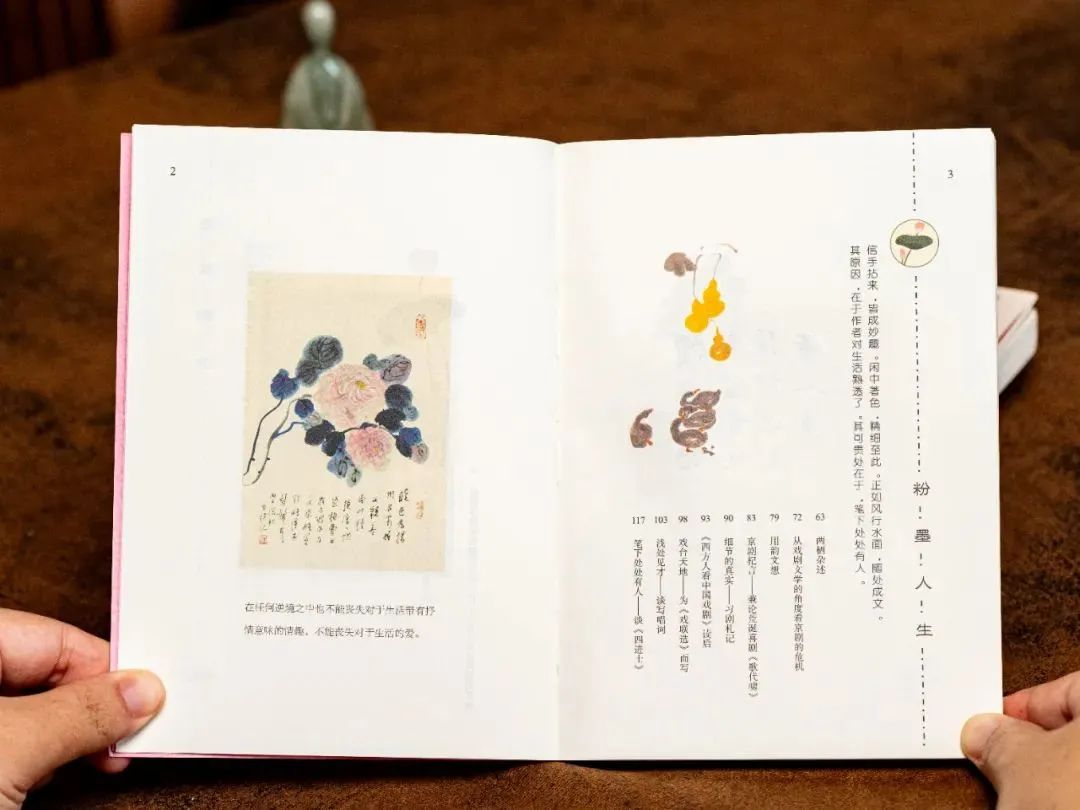 2
在任何逆境之中也不能丧失对于生活带有抒
情意味的情趣，不能丧失对于生活的爱。
3
粉墨人生
信手拈来，皆成妙趣。闲中著色，精细至此。正如风行水面，随处成文。
其原因，在于作者对生活熟透了。其可贵处在于，笔下处处有人。
63 两栖杂述
72 从戏剧文学的角度看京剧的危机
79 用韵文想
83 京剧杞言——兼论荒诞喜剧《歌代啸》
90 细节的真实——习剧札记
93 《西方人看中国戏剧》读后
98 戏台天地——为《戏联选》而写
103 浅处见才——谈写唱词
117 笔下处处有人——谈《四进士》